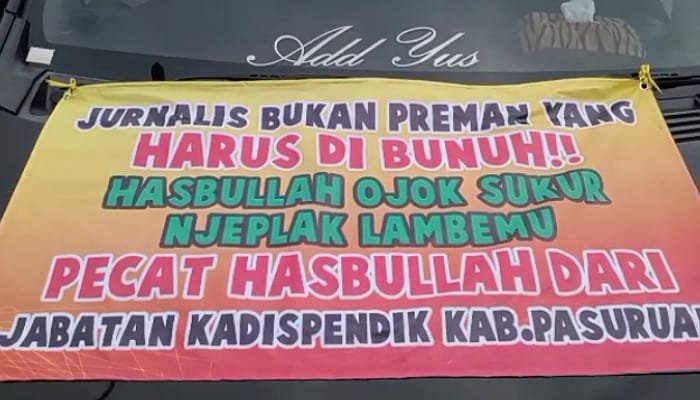 Add Yus
JURNALIS BUKAN PREMAN YANG
HARUS DI BUNUH!!
HASBULLAH OJOK SUKUR
NJEPLAK LAMBEMU
PECAT HASBULLAH DARI
JABATAN KADISPENDIK KAB.PASURUAN